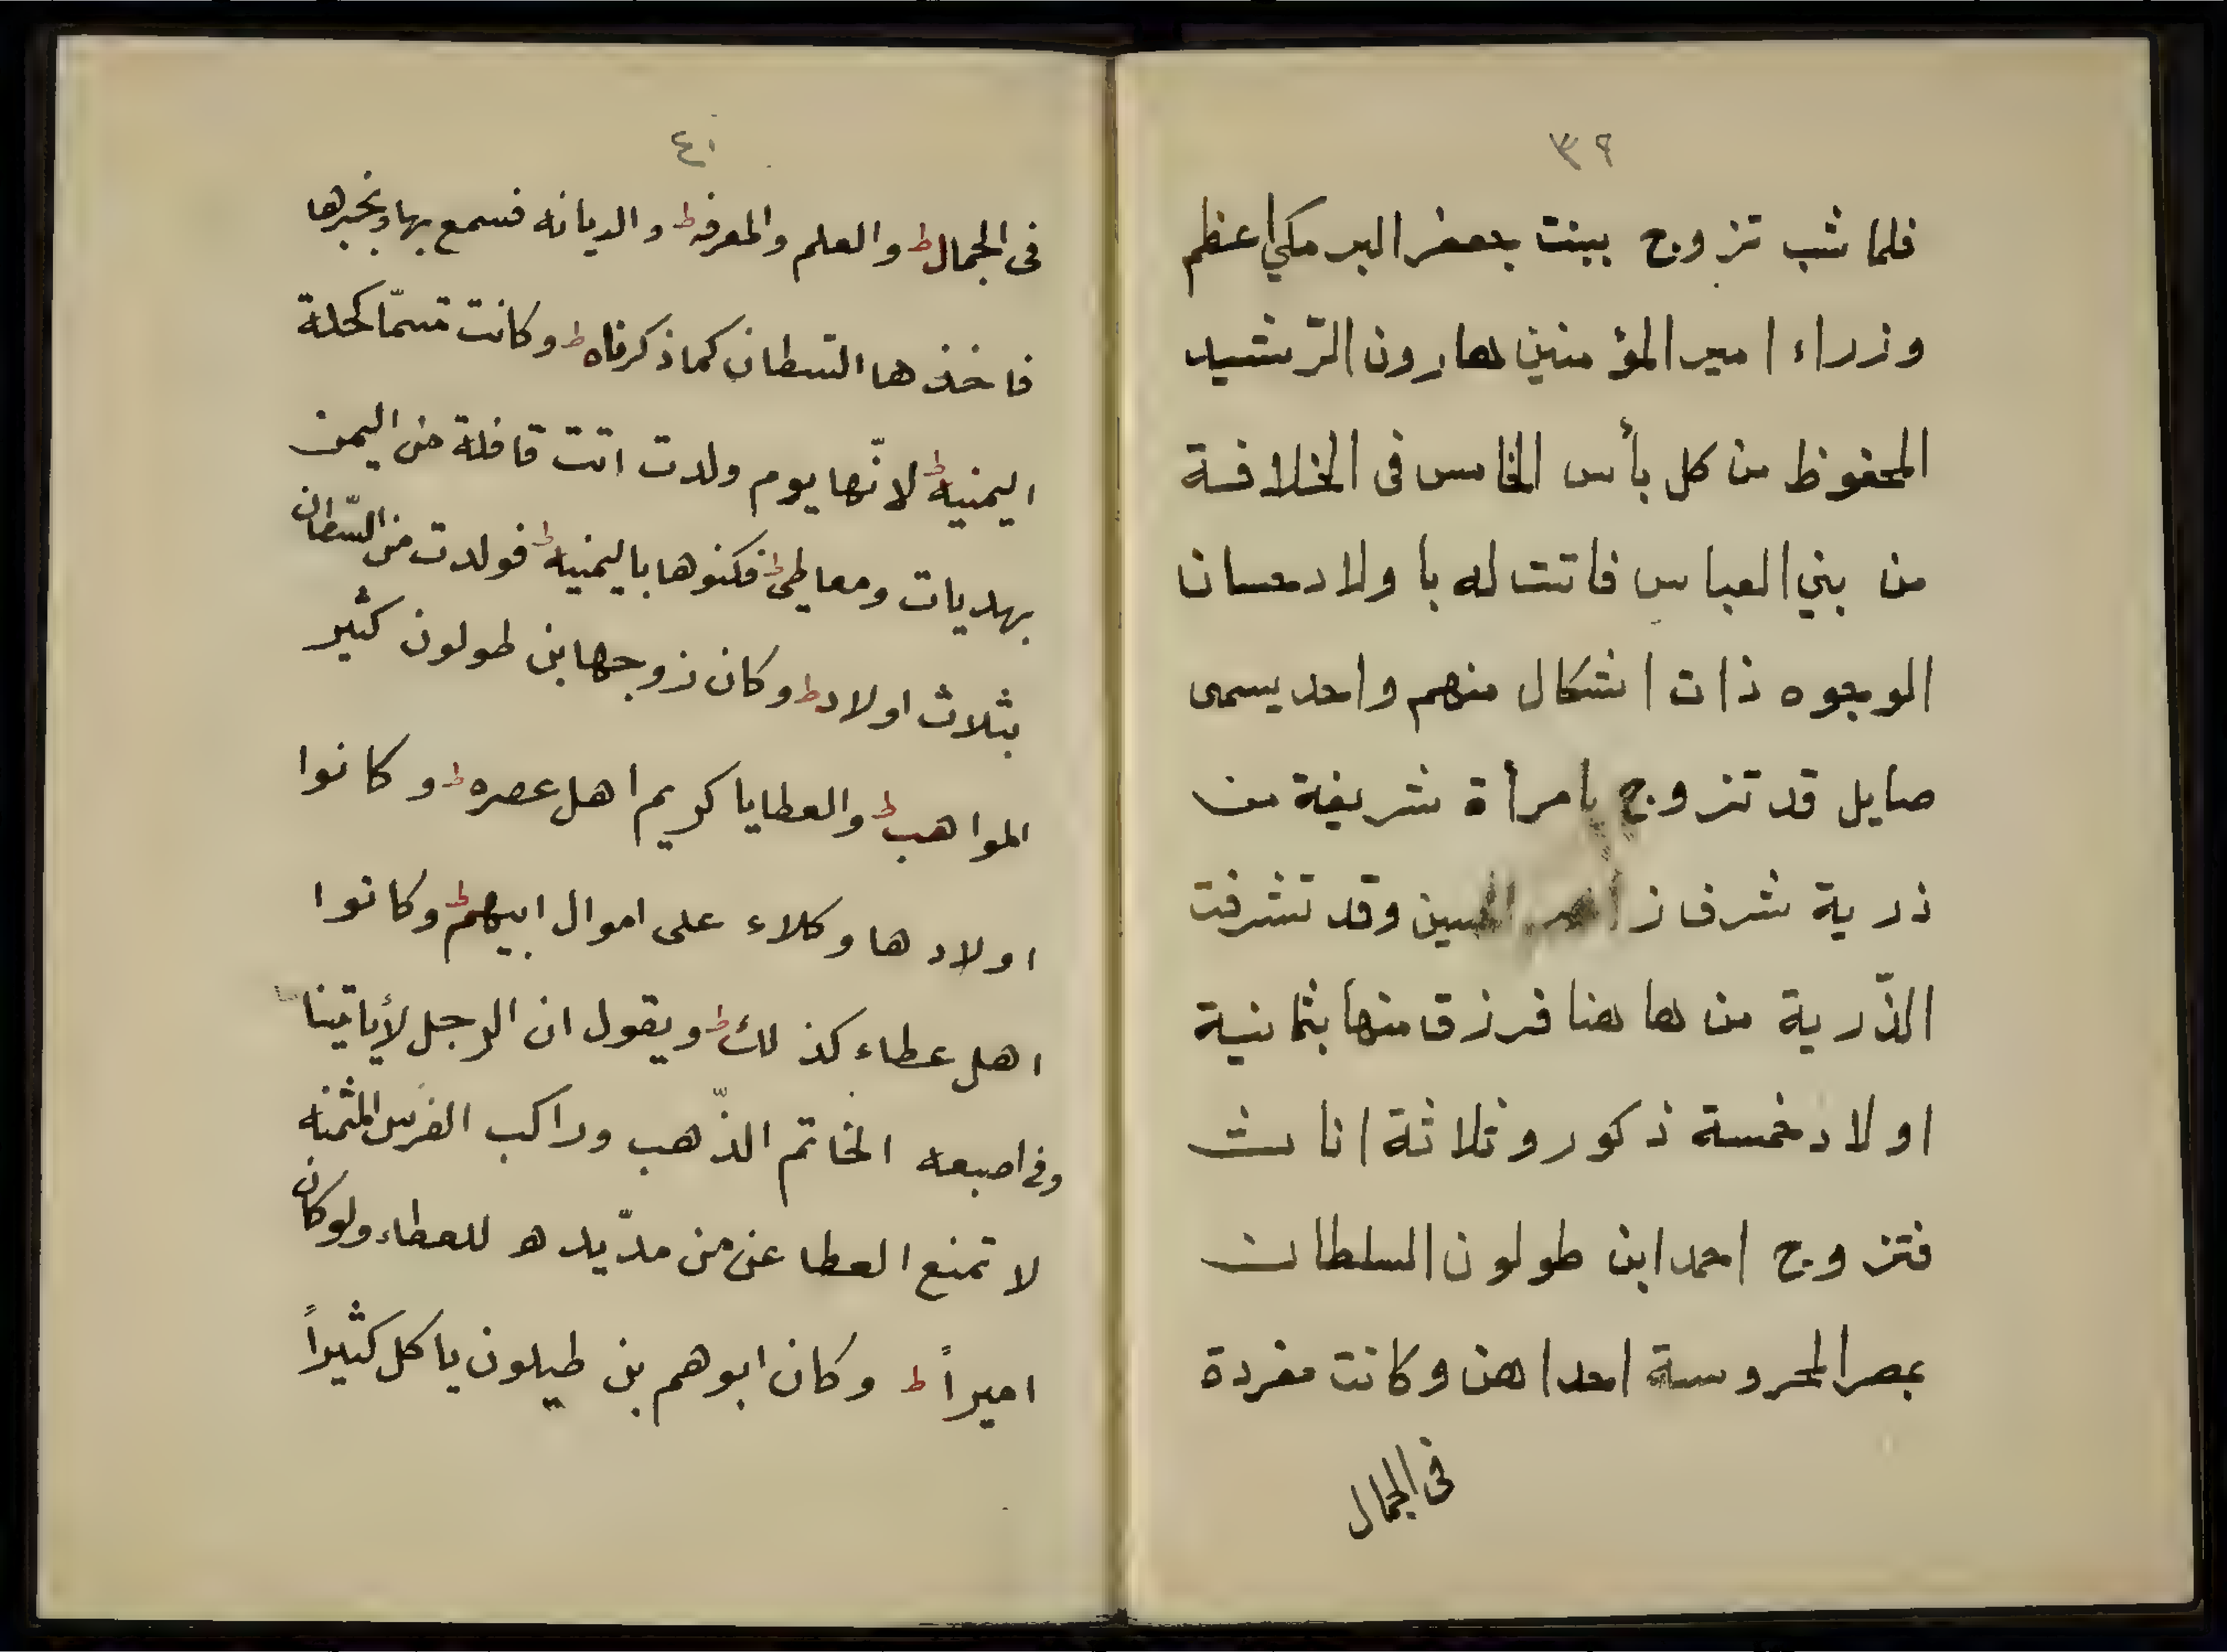 ٣٩
فلما شب تزوج ببنت جعفر البرمكي اعظم
وزراء امير المؤمنين هارون الرّشيد
المحفوظ من كل بأس الخامس فى الخلافة
من بني العباس فاتت له باولاد حسان
الوجوه ذات اشكال منهم واحد يسمى
صايل قد تزوج بامرأة شريفة من
ذرية شرف وقد تشرفت
الذّرية من ها هنا فرزق منها بثمانية
اولاد خمسة ذكور وثلاثة اناث
فتزوج احمد ابن طولون السلطان
بمصر المحروسة احداهن وكانت مفردة
فى الجمال
٤٠
فى الجمال ط والعلم والمعرفه ط والديانه فسمع بها وبخبرها
فاخذها السّطان كما ذكرناه ط وكانت تسمّا كحلة
اليمنيه ط لانّها يوم ولدت اتت قافلة من اليمن
بهديات ومعاطي ط فكنوها باليمنيه ط فولدت من السّطان
بثلاث اولاد ط وكان زوجها بن طولون كثير
المواهب ط والعطايا كريم اهل عصره ط وكانوا
اولادها وكلاء على اموال ابيهم ط وكانوا
اهل عطاء كذلك ط ويقول ان الرجل لأياتينا
وفى اصبعه الخاتم الذّهب وراكب الفرس المثمنه
لا تمنع العطا عن من مدّ يده للعطاء ولو كان
اميراً ط وكان ابوهم بن طيلون ياكل كثيراً